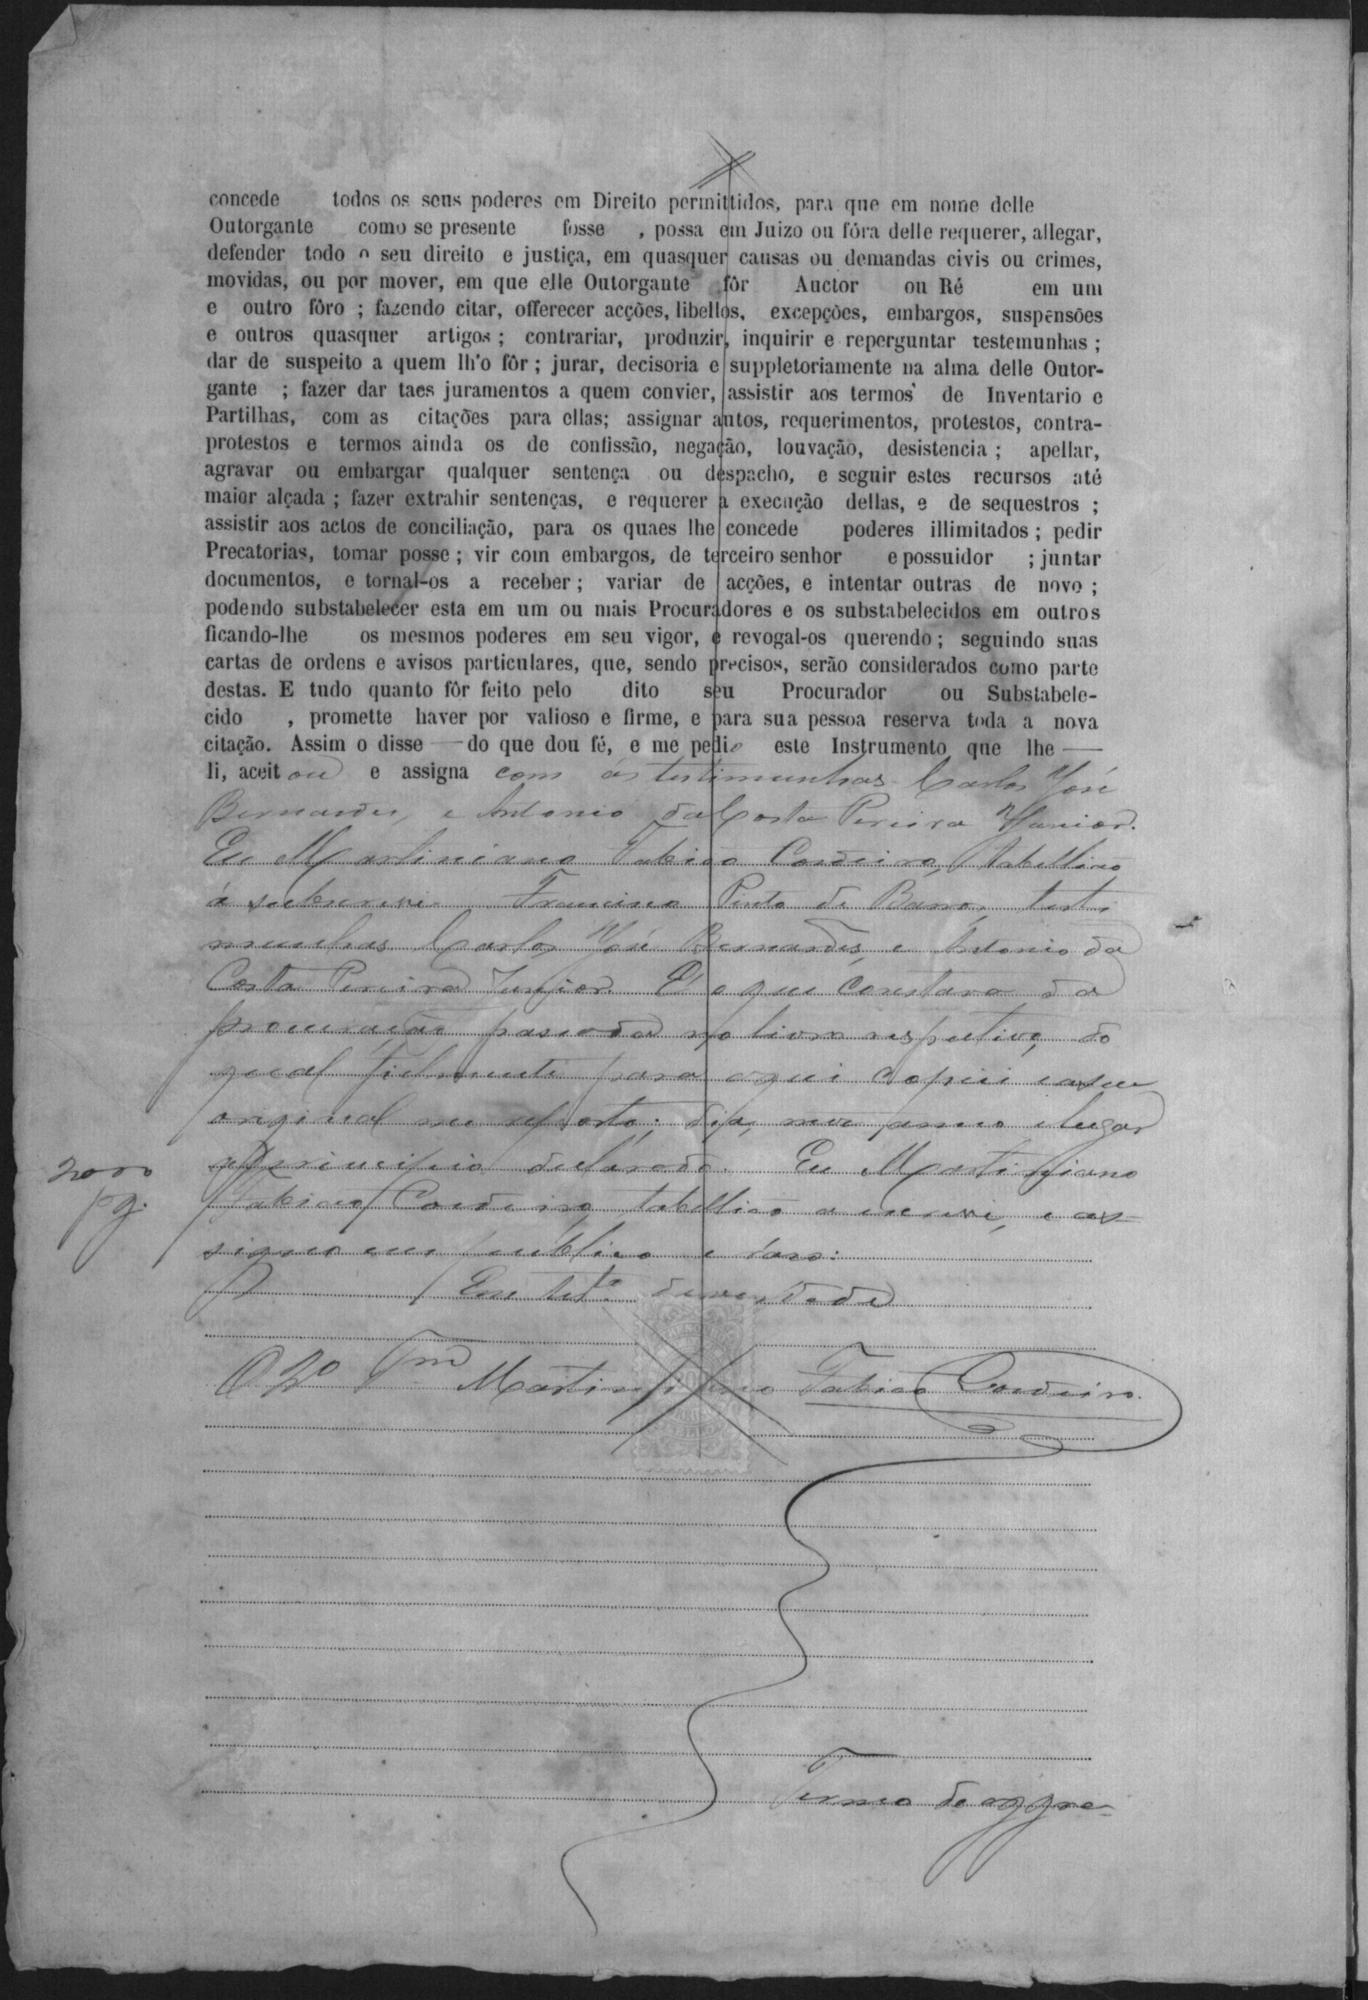 concede todos os seus poderes em Direito permittidos, para que em nome delle
Outorgante como se presente fosse , possa em Juizo ou fóra delle requerer, allegar,
defender todo o seu direito e justiça, em quasquer causas ou demandas civis ou crimes,
movidas, ou por mover, em que elle Outorgante fôr Auctor ou Ré em um
e outro fôro ; fazendo citar, offerecer acções, libellos, excepções, embargos, suspensões
e outros quasquer artigos ; contrariar, produzir, inquirir e reperguntar testemunhas ;
dar de suspeito a quem lh'o fôr ; jurar, decisoria e suppletoriamente na alma delle Outor-
gante ; fazer dar taes juramentos a quem convier, assistir aos termos de Inventario e
Partilhas, com as citações para ellas; assignar autos, requerimentos, protestos, contra-
protestos e termos ainda os de confissão, negação, louvação, desistencia ; apellar,
agravar ou embargar qualquer sentença ou despacho, e seguir estes recursos até
maior alçada ; fazer extrahir sentenças, e requerer a execução dellas, e de sequestros ;
assistir aos actos de conciliação, para os quaes lhe concede poderes illimitados ; pedir
Precatorias, tomar posse ; vir com embargos, de terceiro senhor e possuidor ; juntar
documentos, e tornal-os a receber ; variar de acções, e intentar outras de novo ;
podendo substabelecer esta em um ou mais Procuradores e os substabelecidos em outros
ficando-lhe os mesmos poderes em seu vigor, e revogal-os querendo ; seguindo suas
cartas de ordens e avisos particulares, que, sendo precisos, serão considerados como parte
destas. E tudo quanto fôr feito pelo dito seu Procurador ou Substabele-
cido , promette haver por valioso e firme, e para sua pessoa reserva toda a nova
citação. Assim o disse — do que dou fé, e me pedio este Instrumento que lhe —
li, aceitou e assigna com ás testimunhas Carlos José
Bernardes, e Antonio da Costa Pereira Junior.
Eu Martiniano Fabião Cordeiro, tabellião
á subscrevi. Francisco Pinto de Barros, testi
munhas Carlos José Bernardes, e Antonio da
Costa Pereira Junior. É o que constava da
procuração passada no livro respectivo, do
qual fielmente para aqui copiei e a seu
original me reporto; dia, mez, anno e lugar
principio declarado. Eu Martiniano
Fabião Cordeiro, tabellião a escrevi, e as
signo em publico e raso:
Em test.º da verdade
2000
pg.
O 2º Martiniano Fabião Cordeiro.
Termo de aggra-